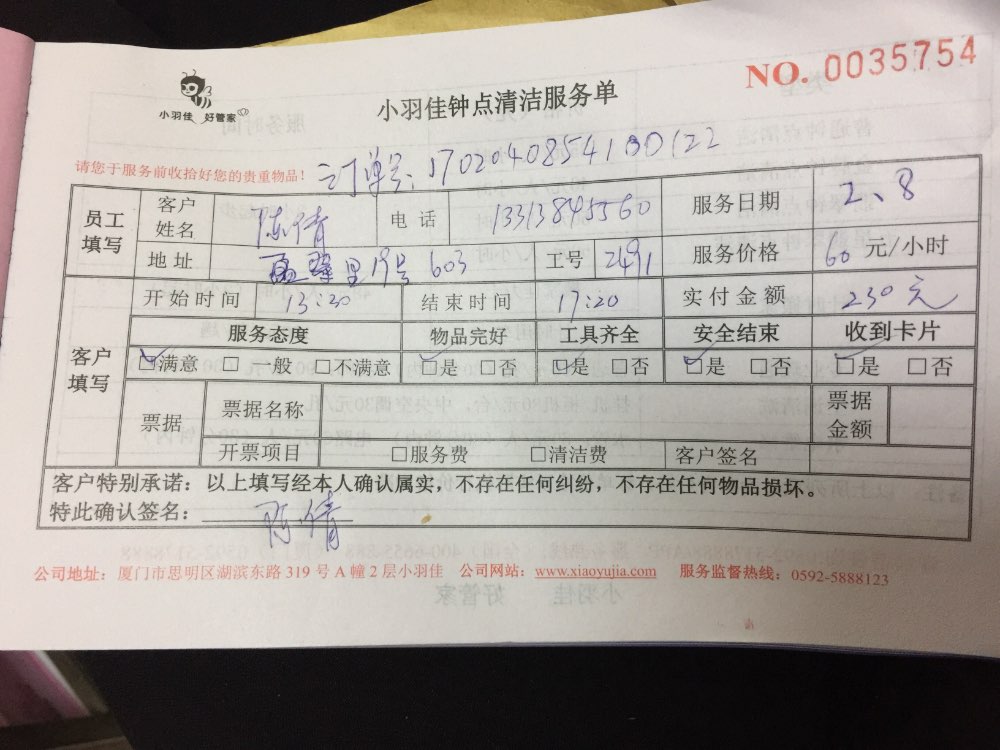 NO. 0035754
小羽佳 好管家
小羽佳钟点清洁服务单
请您于服务前收拾好您的贵重物品！ 订单号：
员工填写 客户姓名 陈倩 电话 13313845560 服务日期 2、8
地址 里19号 603 工号 2491 服务价格 60 元/小时
客户填写 开始时间 13:20 结束时间 17:20 实付金额 230元
服务态度 物品完好 工具齐全 安全结束 收到卡片
☑满意 □一般 □不满意 ☑是 □否 ☑是 □否 ☑是 □否 ☑是 □否
票据 票据名称 票据金额
开票项目 □服务费 □清洁费 客户签名
客户特别承诺：以上填写经本人确认属实，不存在任何纠纷，不存在任何物品损坏。
特此确认签名： 陈倩
公司地址：厦门市思明区湖滨东路 319 号 A 幢 2 层小羽佳 公司网站：www.xiaoyujia.com 服务监督热线：0592-5888123